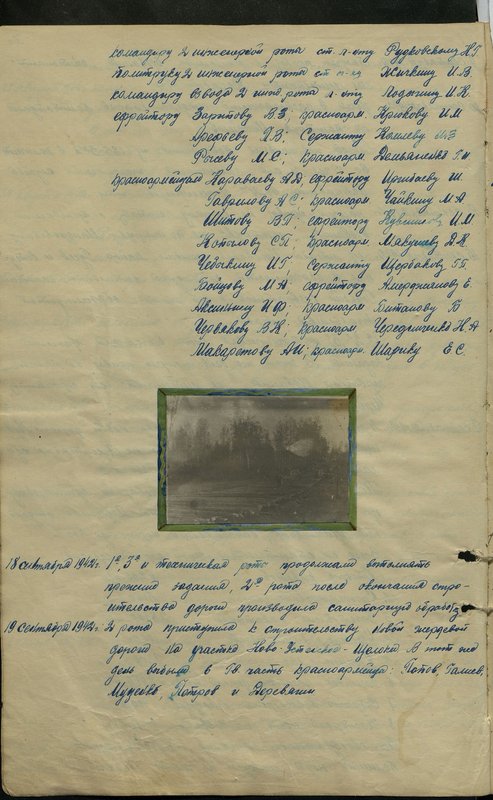 командиру 2 инженерной роты ст л-нту Рудковскому Н.Г
политруку 2 инженерной роты ст п-ку Жичкину И.В.
командиру взвода 2 инж. роты л-нту Лодыгину И.К.
ефрейтору Зарипову В.З, красноарм. Крюкову И.М
Арефьеву Я.В; Сержанту Кошлеву
Рычеву М.С; красноарм. Демьяненко Г.И
красноармейцам Караваеву А.Д, ефрейтору Иргибаеву Ш.
Гаврилову А.С; красноарм. Чайкину М.А.
Шитову В.Г; ефрейтору И.М
Копылову С.П; красноарм. Мякушеву Д.К.
Чебыкину И.Г, Сержанту Щербакову Г.Г.
Бойцову М.А; ефрейтору Амерджанову Е.
Аксиньину И.Ф; красноарм Битанову Б
Червякову В.Ж; красноарм Чередниченко Н.А
Макаретову А.И; красноарм. Шарику Е.С.
18 сентября 1942г. 1ª, 3ª и техническая роты продолжали выполнять
прежние задания, 2ª рота после окончания стро-
ительства дороги производила санитарную обработку
19 сентября 1942г. 2 рота приступила к строительству новой жердевой
дороги на участке Ново-Эстонская - Щелока В тот же
день выбыли в Гв. часть красноармейцы: Попов, Галиев,
Петров и Деревягин